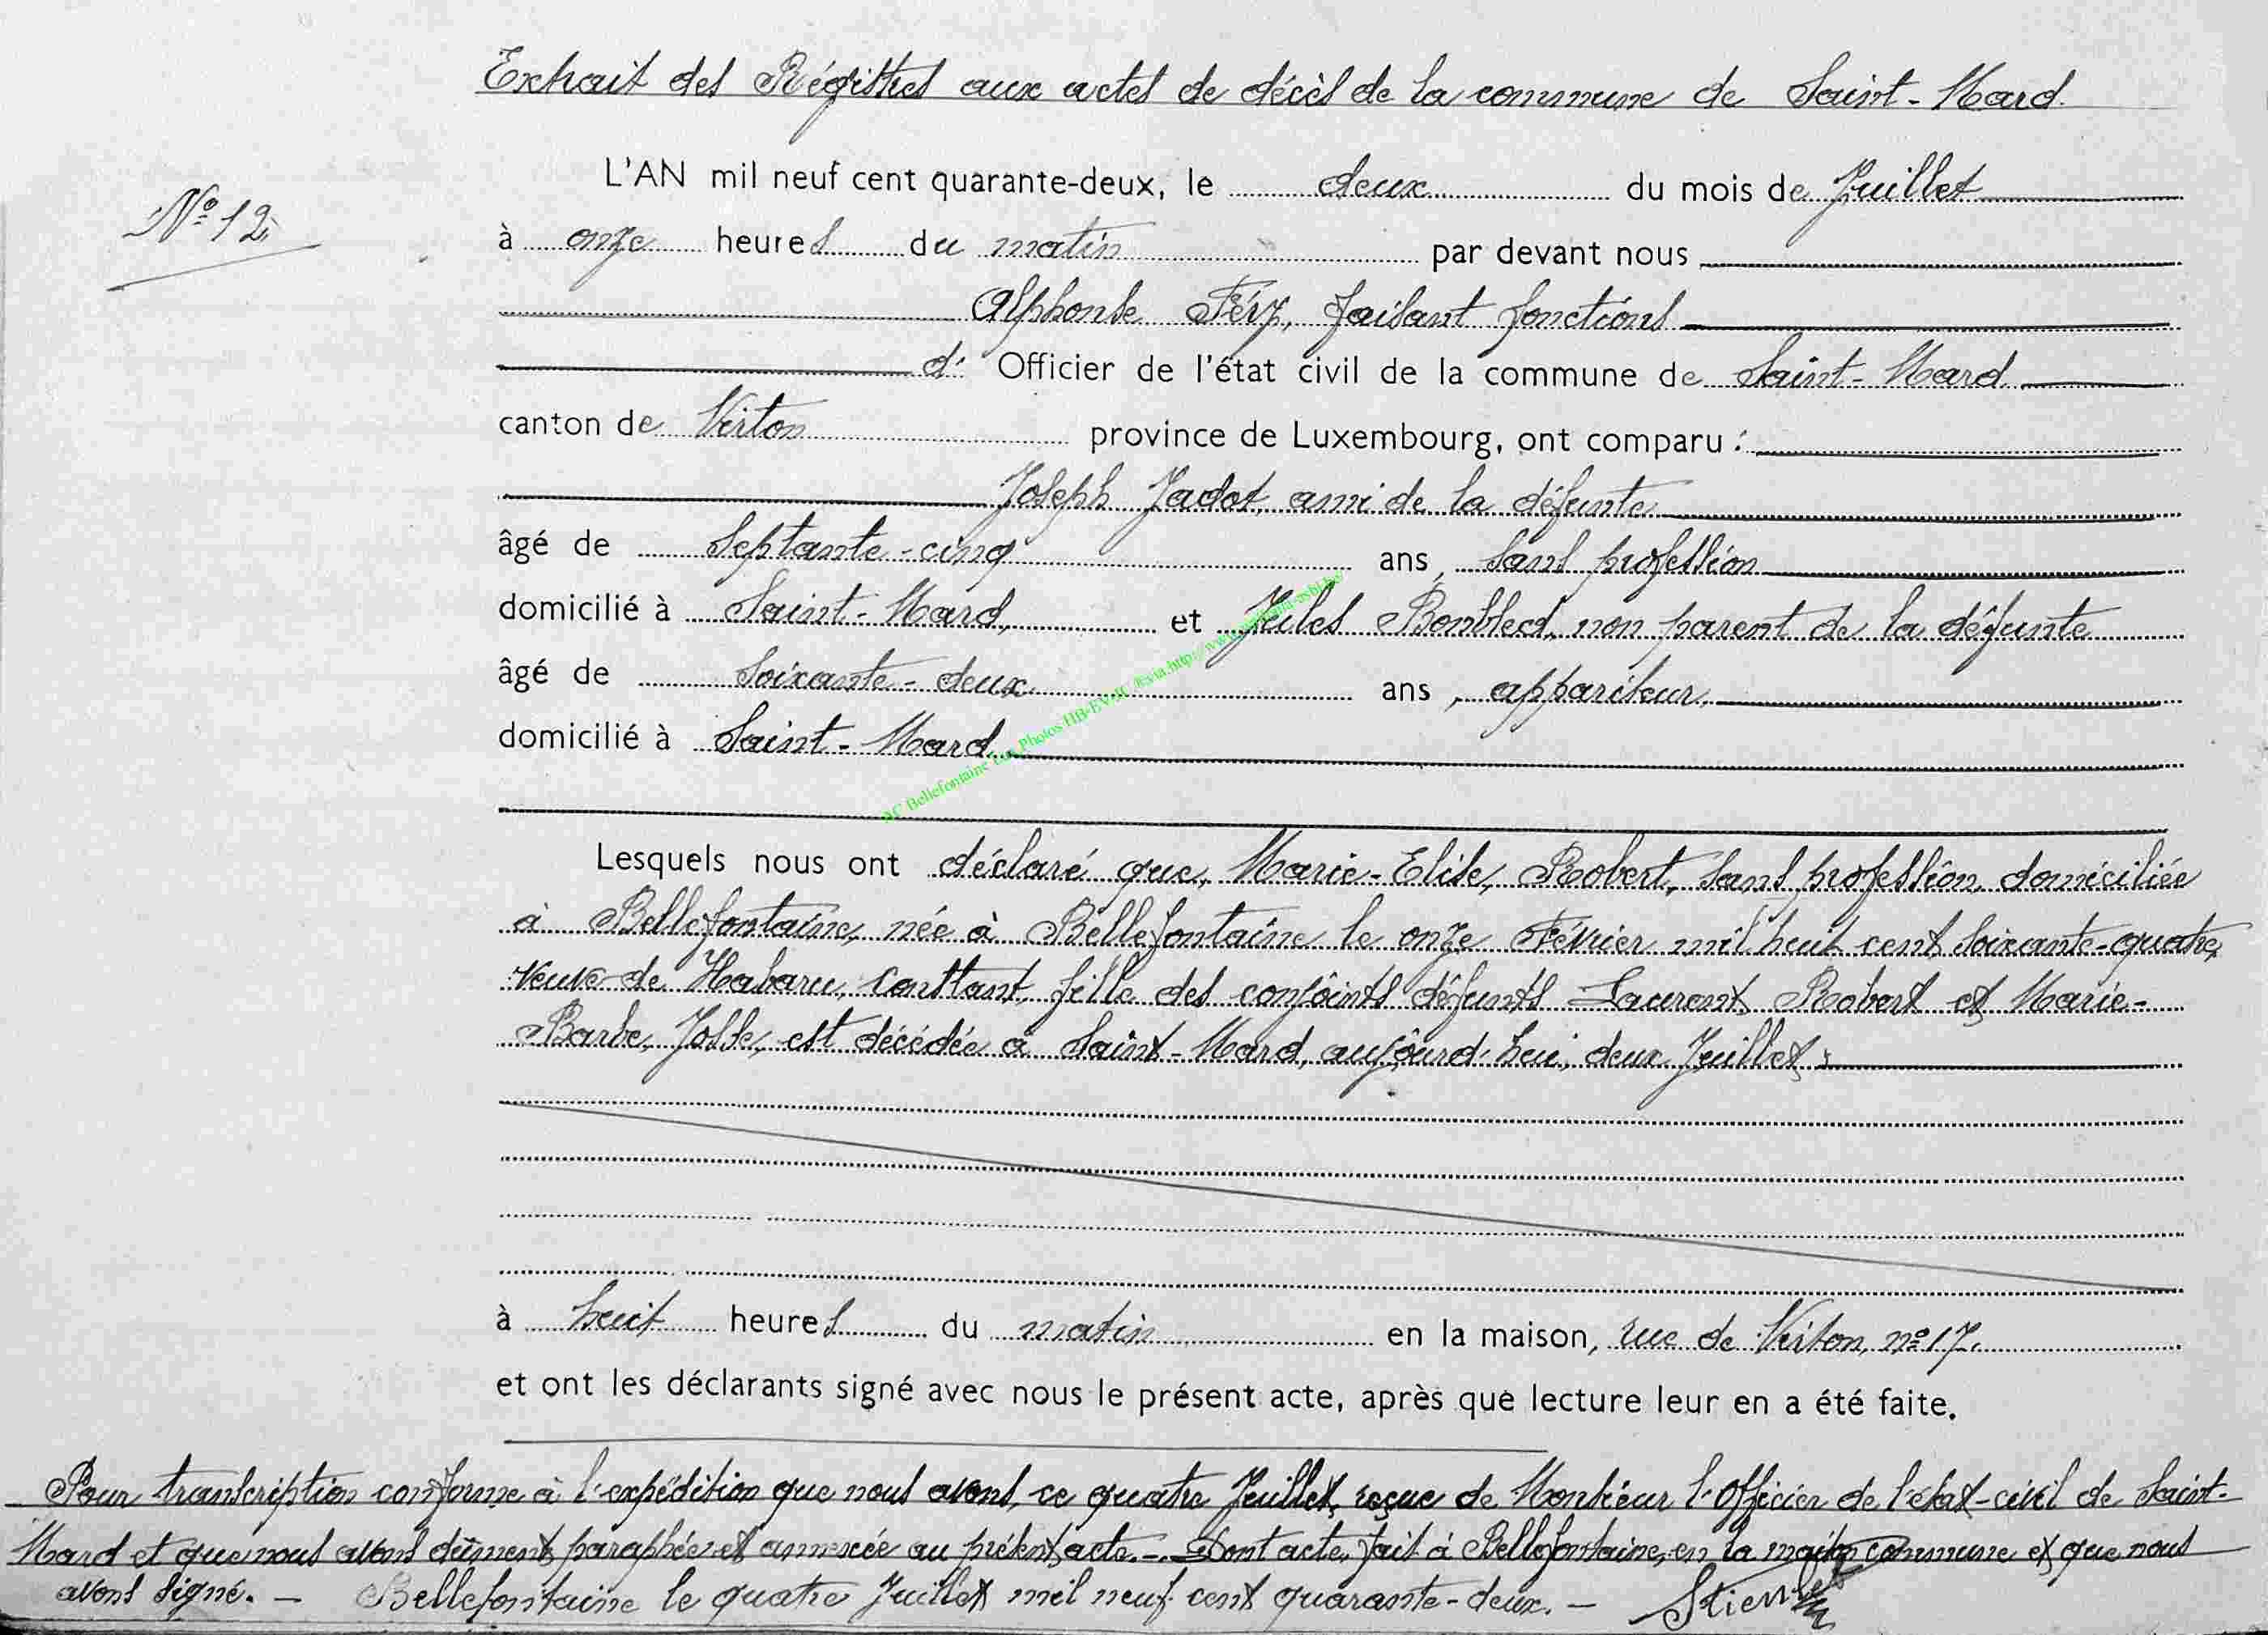 Extrait des Régistres aux actes de décès de la commune de Saint-Mard.
N° 12.
L'AN mil neuf cent quarante-deux, le deux du mois de Juillet
à onze heures du matin par devant nous
Alphonse Féry, faisant fonctions
d' Officier de l'état civil de la commune de Saint-Mard
canton de Virton province de Luxembourg, ont comparu :
Joseph Jadot, ami de la défunte
âgé de septante-cinq ans, sans profession
domicilié à Saint-Mard, et Jules non parent de la défunte
âgé de soixante-deux ans, appariteur.
domicilié à Saint-Mard.
AC Bellefontaine Photos HB-EV-JC via http://www.
Lesquels nous ont déclaré que, Marie-Elise, Robert, sans profession, domiciliée
à Bellefontaine, née à Bellefontaine le onze Février mil huit cent soixante-quatre,
veuve de Habaru, Constant, fille des conjoints défunts Laurent, Robert et Marie-
Barbe, Josse, est décédée à Saint-Mard, aujourd'hui, deux Juillet,
à huit heures du matin en la maison, rue de Virton, n° 17.
et ont les déclarants signé avec nous le présent acte, après que lecture leur en a été faite.
Pour transcription conforme à l'expédition que nous avons, ce quatre Juillet, reçue de Monsieur l'Officier de l'état-civil de Saint-
Mard et que nous avons dûment paraphée et annexée au présent acte. - Dont acte, fait à Bellefontaine, en la maison commune et que nous
avons signé. - Bellefontaine le quatre Juillet mil neuf cent quarante-deux. -